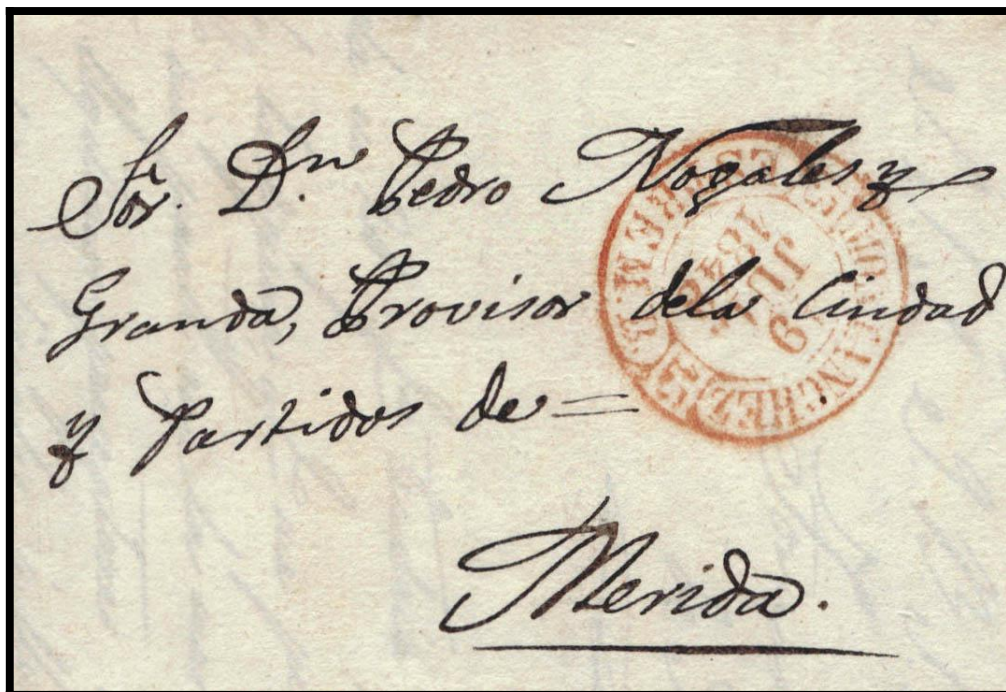 Sor. Dn. Pedro Nogales y
Granda, Provisor dela Ciudad
y Partidos de =
Merida.
9
JUL
EXTREM. B.